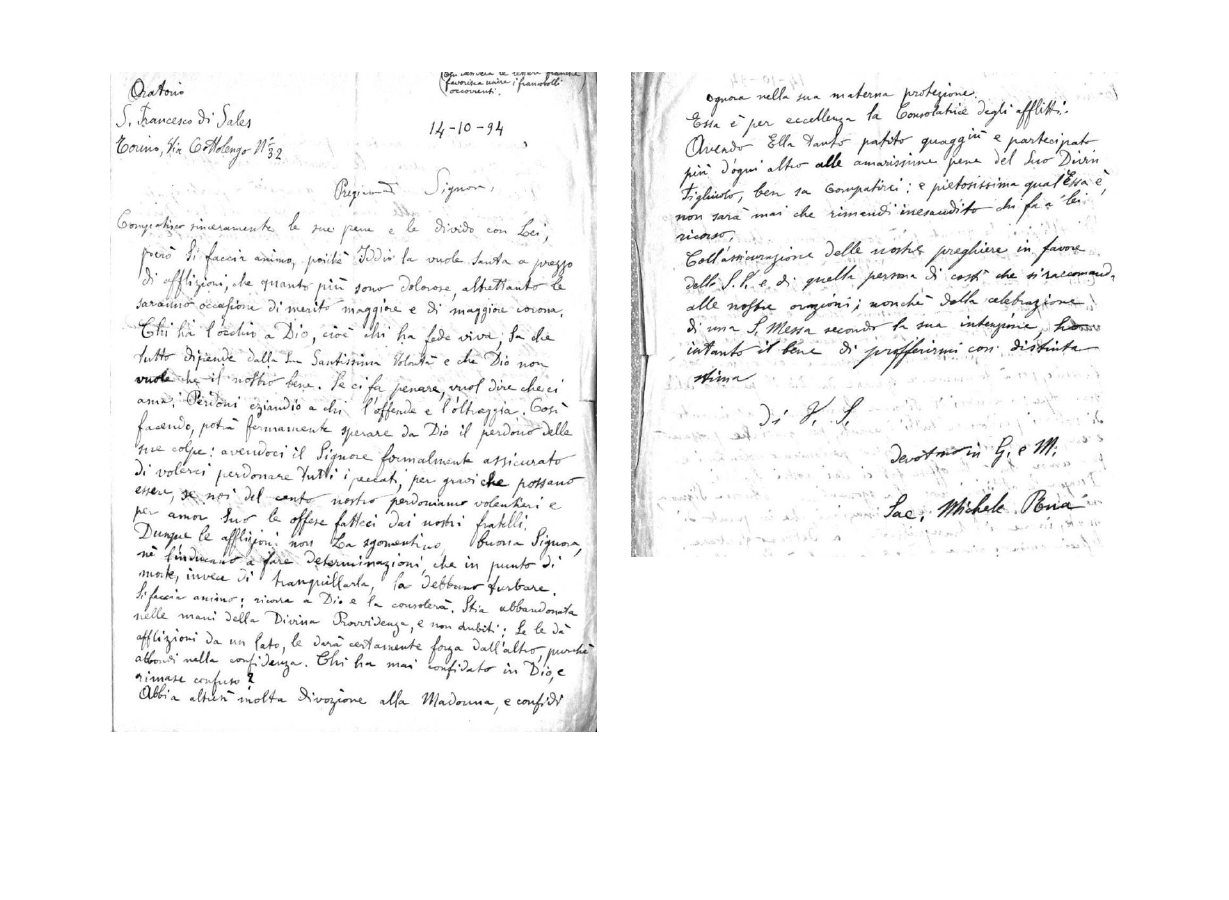 Oratorio
S. Francesco di Sales
Torino, Via Cottolengo N° 32
favorisca unire i francobolli
occorrenti.
14-10-94
Signora,
Compatisco sinceramente le sue pene e le divido con Lei,
però Si faccia animo, poichè Iddio la vuole santa a prezzo
di afflizioni, che quanto più sono dolorose, altrettanto le
saranno occasione di merito maggiore e di maggiore corona.
Chi ha l'occhio a Dio, cioè chi ha fede viva, Sa che
tutto dipende dalla Sua Santissima Volontà e che Dio non
vuole che il nostro bene. Se ci fa penare, vuol dire che ci
ama. Perdoni eziandio a chi l'offende e l'oltraggia. Così
facendo, potrà fermamente sperare da Dio il perdono delle
sue colpe: avendoci il Signore formalmente assicurato
di volerci perdonare tutti i peccati, per gravi che possano
essere, se noi del canto nostro perdoniamo volentieri e
per amor Suo le offese fatteci dai nostri fratelli.
Dunque le afflizioni non La sgomentino, buona Signora,
nè l'inducano a fare determinazioni, che in punto di
morte, invece di tranquillarla, la debbano turbare.
Si faccia animo; ricorra a Dio e la consolerà. Stia abbandonata
nelle mani della Divina Provvidenza, e non dubiti; Se le dà
afflizioni da un lato, le darà certamente forza dall'altro, purchè
abbondi nella confidenza. Chi ha mai confidato in Dio, e
rimase confuso?
Abbia altresì molta divozione alla Madonna, e confidi
ognora nella sua materna protezione.
Essa è per eccellenza la Consolatrice degli afflitti.
Avendo Ella tanto patito quaggiù e partecipato
più d'ogni altro alle amarissime pene del Suo Divin
Figliuolo, ben sa Compatirci; e pietosissima qual'Essa è,
non sarà mai che rimandi inesaudito chi fa a lei
ricorso.
Coll'assicurazione delle nostre preghiere in favore
della S. V. e di quella persona di costì che si raccomanda
alle nostre orazioni; nonchè della celebrazione
di una S. Messa secondo la sua intenzione,
intanto il bene di profferirmi con distinta
stima
Di V. S.
Devotmo in G. e M.
Sac. Michele Rua